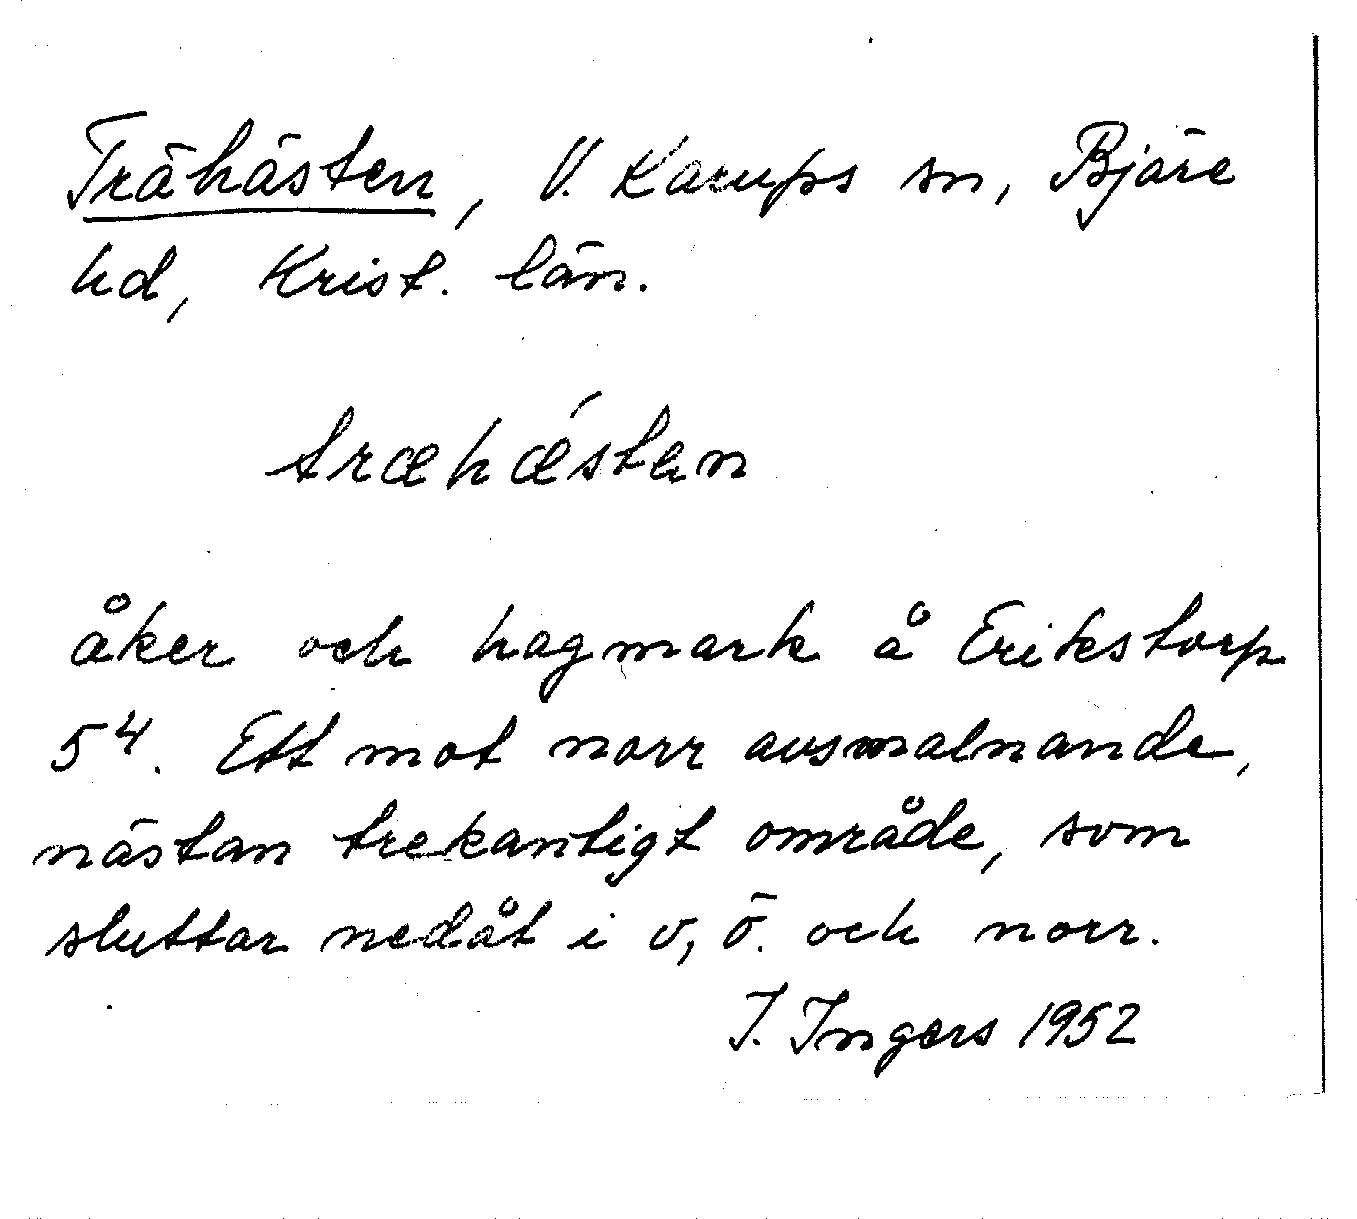 Trähästen, V. Karups sn, Bjäre
hd, Krist. län.
træhǽsten
åker och hagmark å Erikstorp
5⁴. Ett mot norr avsmalnande,
nästan trekantigt område, som
sluttar nedåt i v, ö. och norr.
I. Ingers 1952